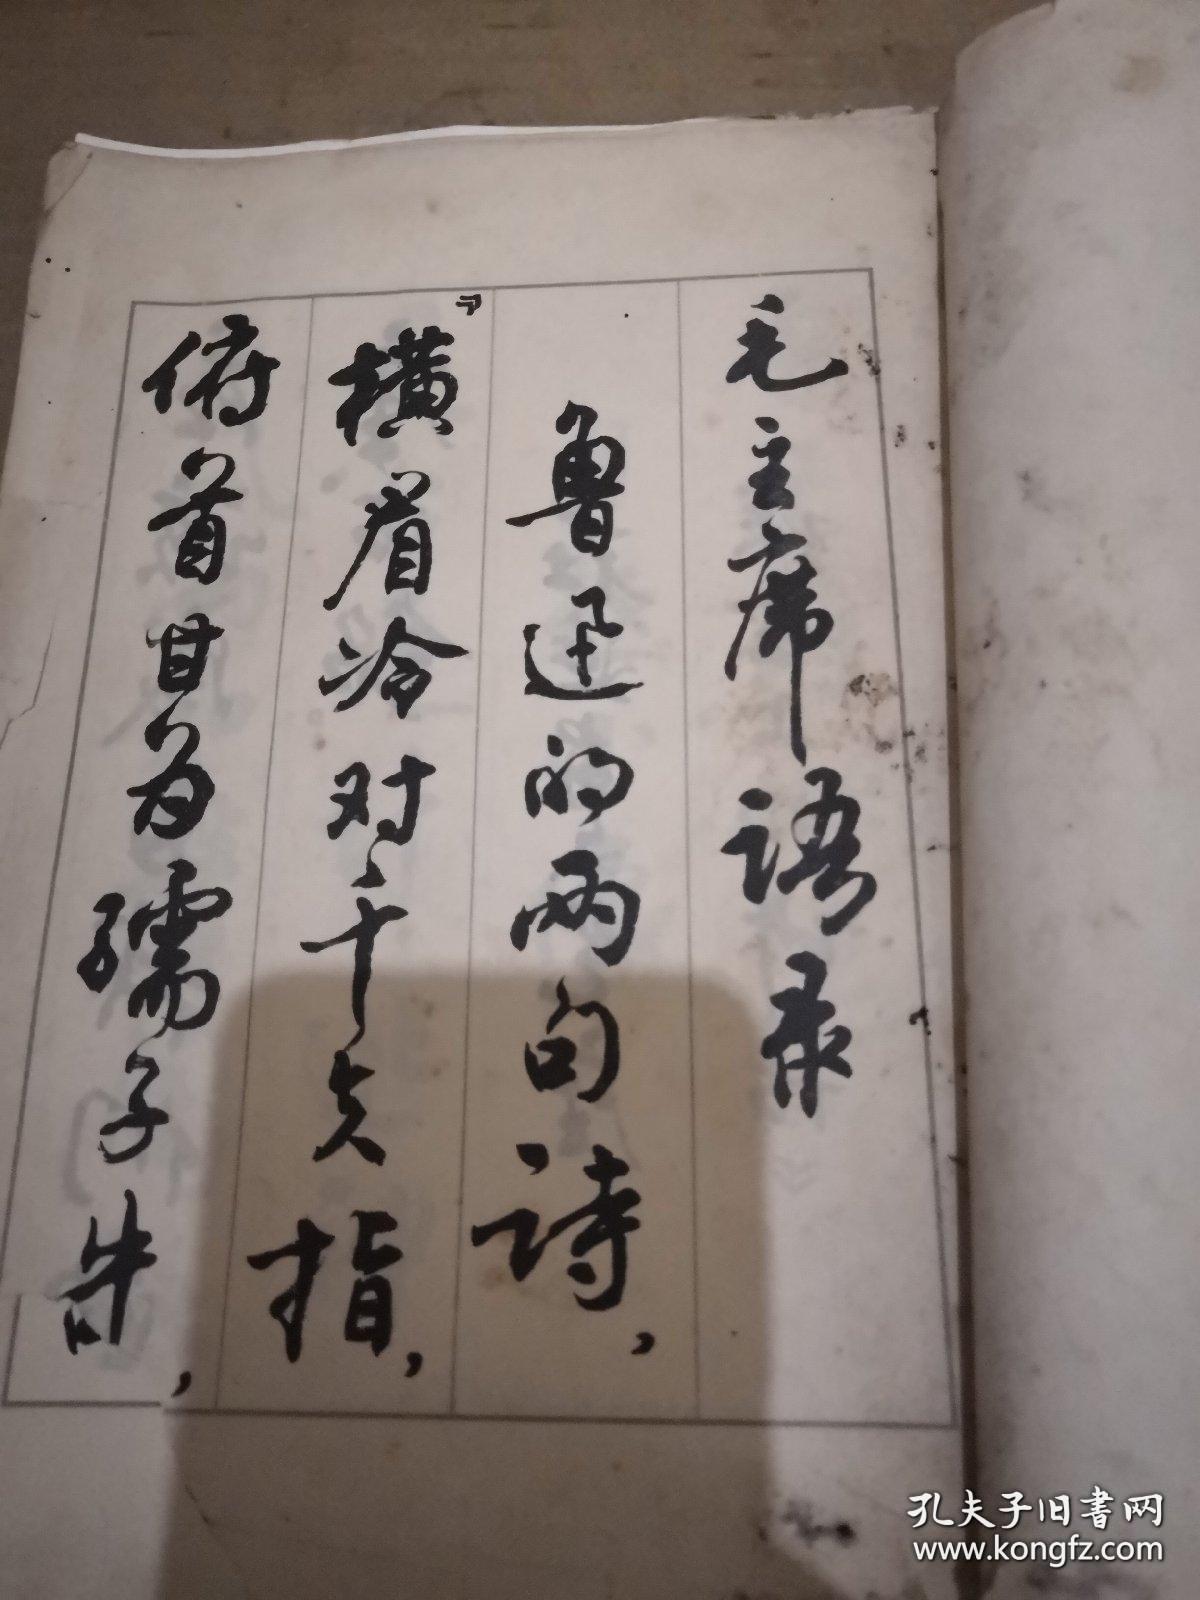 毛主席语录
鲁迅的两句诗，
『横眉冷对千夫指，
俯首甘为孺子牛，
孔夫子旧书网
www.kongfz.com